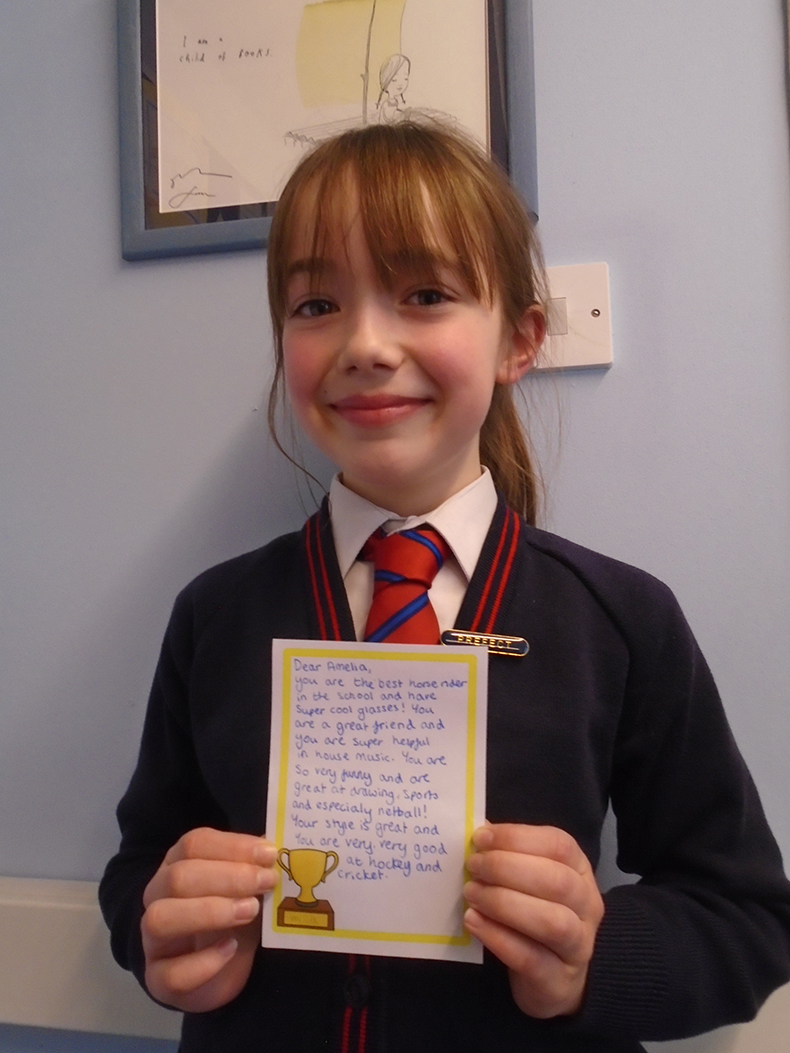 I am a
child of books.
PREFECT
Dear Amelia,
you are the best horse rider
in the school and have
super cool glasses! You
are a great friend and
you are super helpful
in house music. You are
so very funny and are
great at drawing, sports
and especialy netball!
Your style is great and
You are very, very good
at hockey and
cricket.